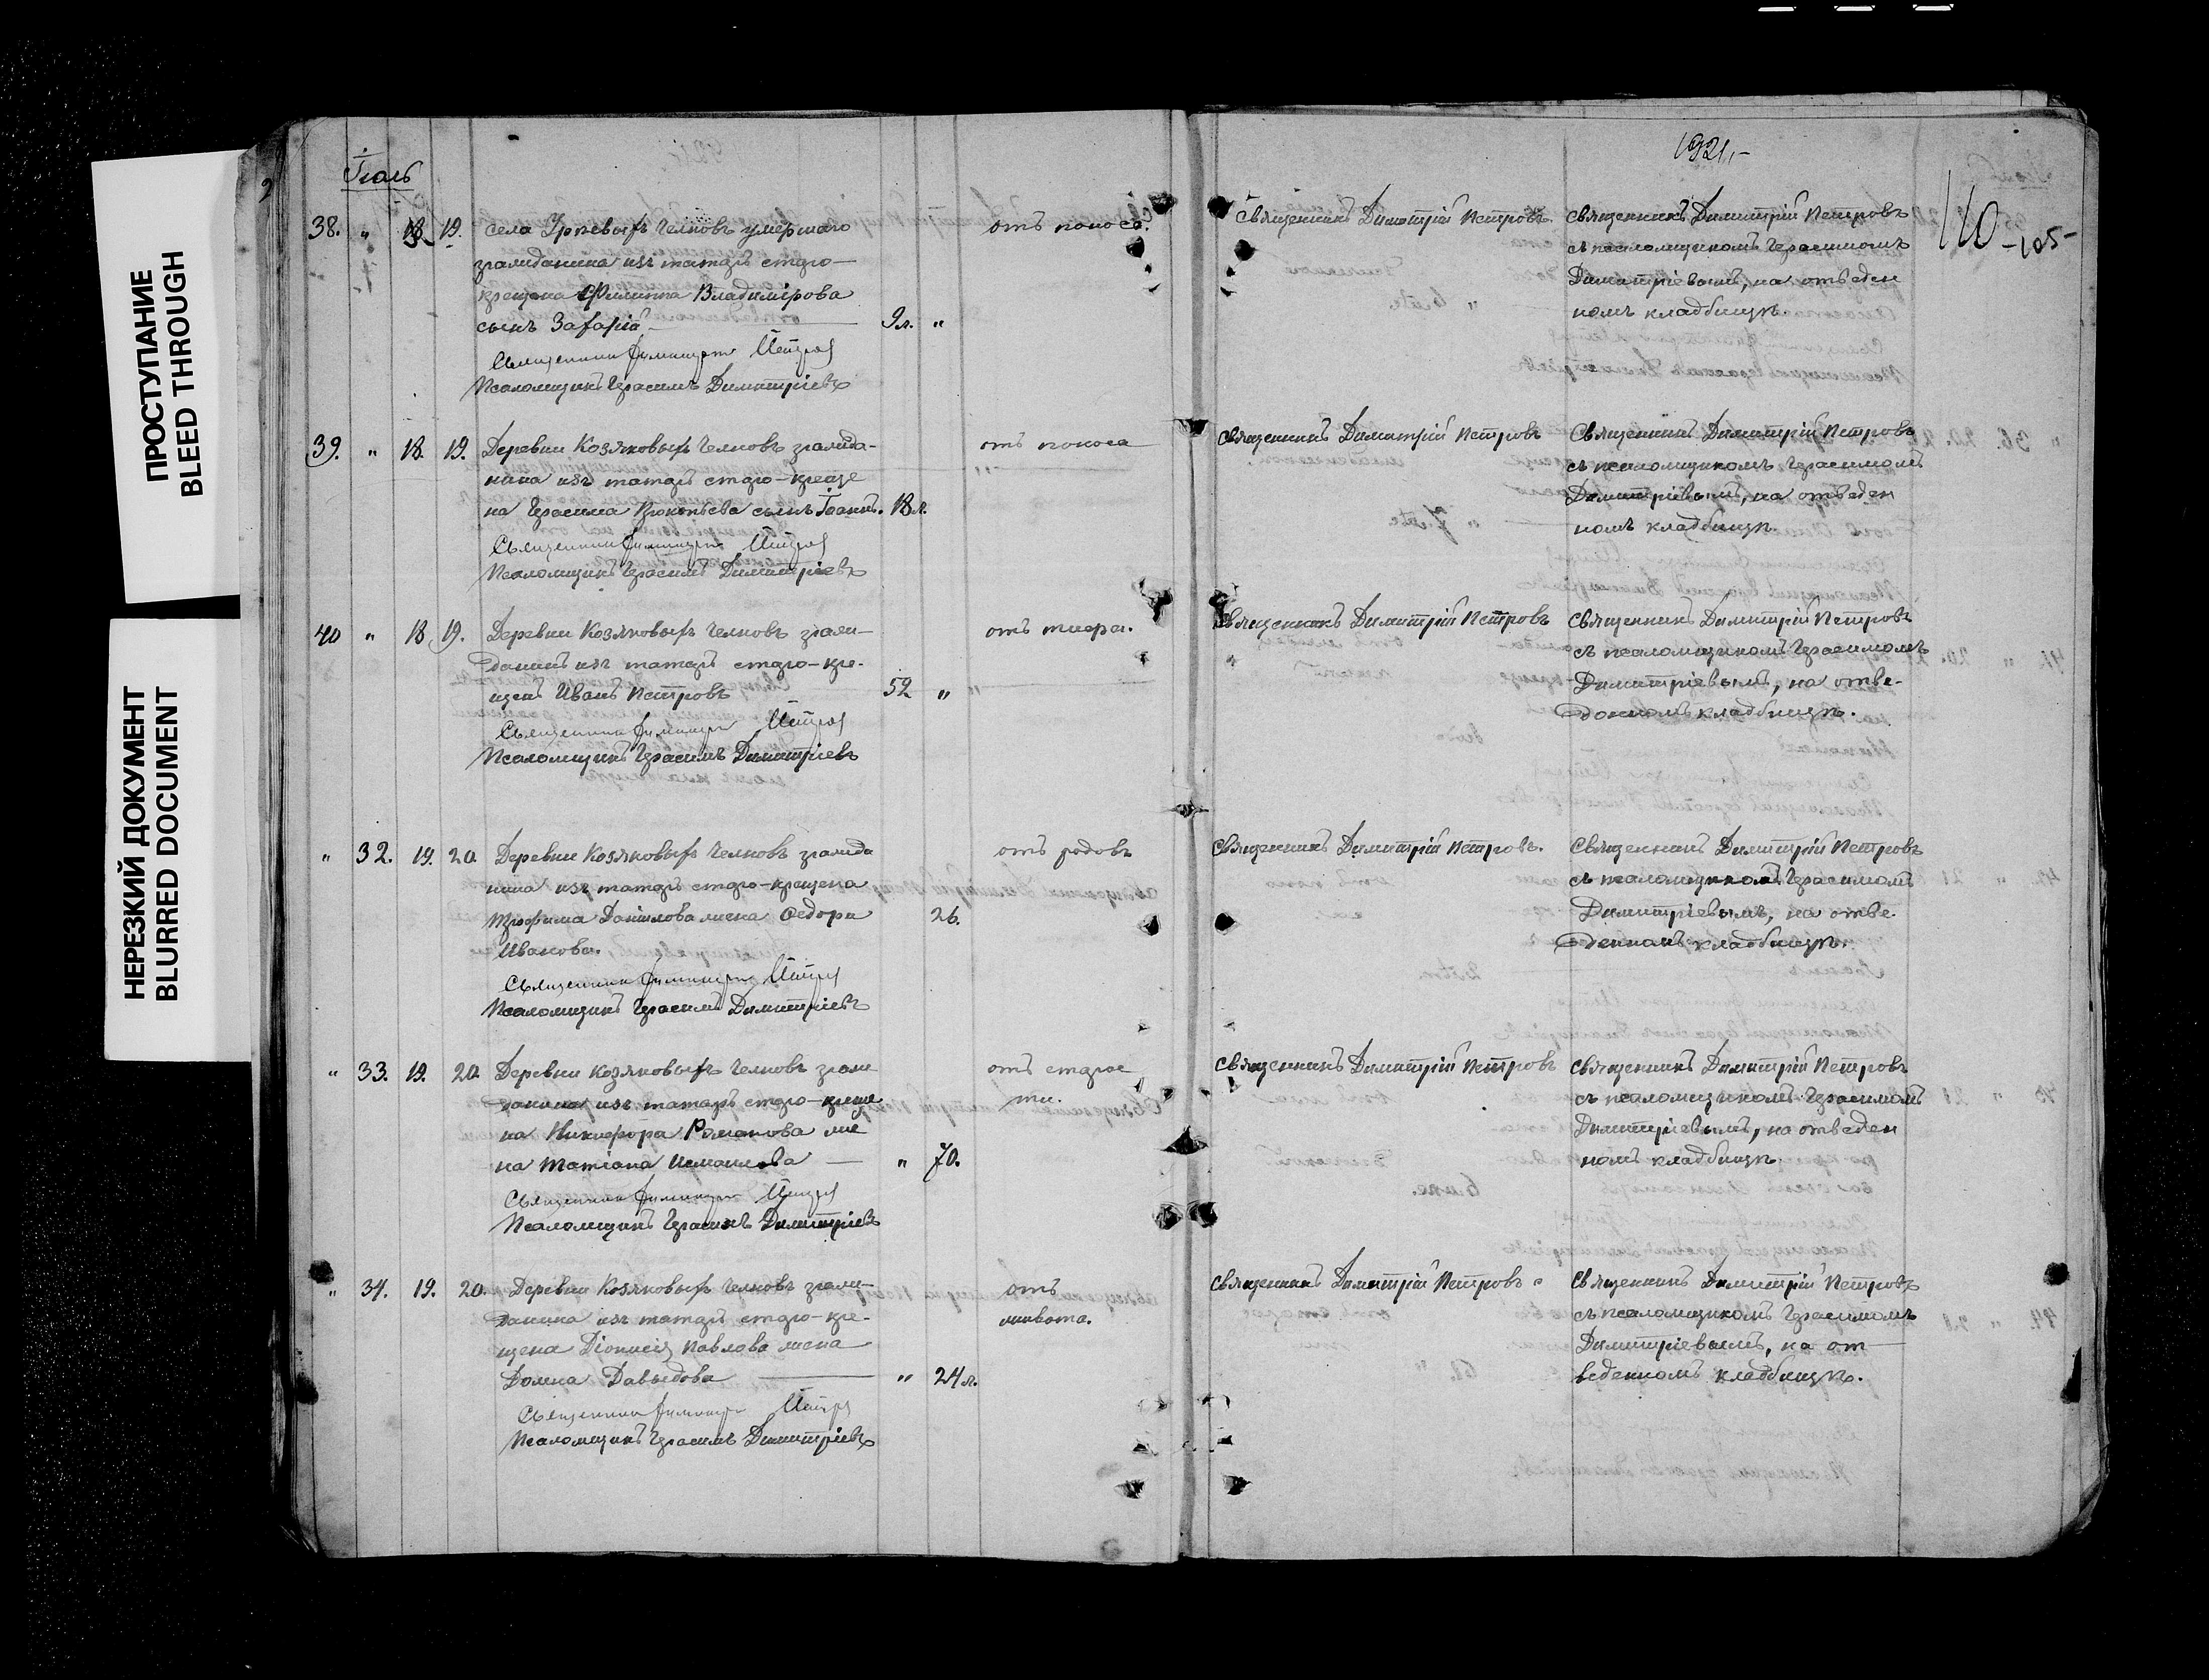 ПРОСТУПАНИЕ
BLEED THROUGH
НЕРЕЗКИЙ ДОКУМЕНТ
BLURRED DOCUMENT
1921.-
110 -105-
Іюль
38. " 18. 19. села Челновъ умершаго
гражданина изъ татаръ старо-
крещена Филиппа Владимірова
сынъ Захарій — 9 л. "
отъ поноса.
Священникъ Димитрій Петровъ.
Священникъ Димитрій Петровъ
съ псаломщикомъ Герасимомъ
Димитріевымъ, на отведен
номъ кладбищѣ.
Священникъ Димитрій Петровъ
Псаломщикъ Герасимъ Димитріевъ
39. " 18. 19. Деревни Козяковыхъ Челновъ гражда-
нина изъ татаръ старо-креще
на Герасима сынъ Іоаннъ. 18 л.
отъ поноса
Священникъ Димитрій Петровъ
Священникъ Димитрій Петровъ
съ псаломщикомъ Герасимомъ
Димитріевымъ, на отведен
номъ кладбищѣ.
Священникъ Димитрій Петровъ
Псаломщикъ Герасимъ Димитріевъ
40 " 18. 19. Деревни Козяковыхъ Челновъ граж-
данинъ изъ татаръ старо-кре-
щенъ Иванъ Петровъ 52 "
отъ тифа.
Священникъ Димитрій Петровъ
Священникъ Димитрій Петровъ
съ псаломщикомъ Герасимомъ
Димитріевымъ, на отве-
денномъ кладбищѣ.
Священникъ Димитрій Петровъ
Псаломщикъ Герасимъ Димитріевъ
" 32. 19. 20. Деревни Козяковыхъ Челновъ гражда
нина изъ татаръ старо-крещена
Трофима Данилова жена Федора 26.
Иванова.
отъ родовъ
Священникъ Димитрій Петровъ.
Священникъ Димитрій Петровъ
съ псаломщикомъ Герасимомъ
Димитріевымъ, на отве-
денномъ кладбищѣ.
Священникъ Димитрій Петровъ
Псаломщикъ Герасимъ Димитріевъ
" 33. 19. 20. Деревни Козяковыхъ Челновъ граж
данина изъ татаръ старо-креще
на Никифора Романова же
на Татіана — " 70.
отъ старос
ти.
Священникъ Димитрій Петровъ
Священникъ Димитрій Петровъ
съ псаломщикомъ Герасимомъ
Димитріевымъ, на отведен
номъ кладбищѣ.
Священникъ Димитрій Петровъ
Псаломщикъ Герасимъ Димитріевъ
" 34. 19. 20. Деревни Козяковыхъ Челновъ граж-
данина изъ татаръ старо-кре-
щена Діонисія Павлова жена
Домна Давыдова — " 24 л.
отъ
живота.
Священникъ Димитрій Петровъ.
Священникъ Димитрій Петровъ
съ псаломщикомъ Герасимомъ
Димитріевымъ, на от-
веденномъ кладбищѣ.
Священникъ Димитрій Петровъ
Псаломщикъ Герасимъ Димитріевъ